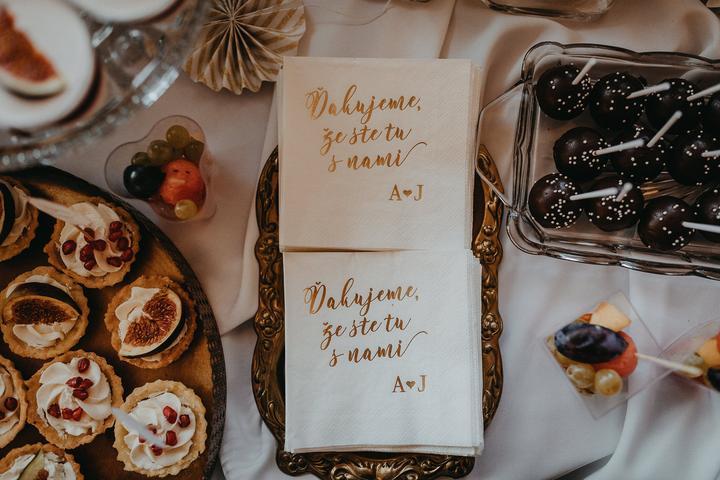 Ďakujeme,
že ste tu
s nami
A♥J
Ďakujeme,
že ste tu
s nami
A♥J